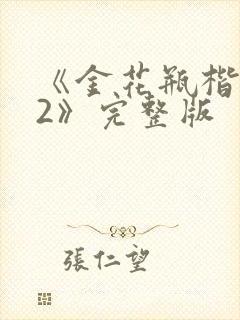 《金花瓶楷
2》完整版
張仁望